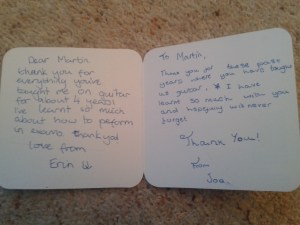 Dear Martin
thank you for
everything you've
taught me on guitar
for (about 4 years)!
I've learnt so much
about how to perform
in exams thankyou!
love from
Erin
To Martin,
Thank you for these past
years where you have taught
us guitar. I have
learnt so much with you
and happily will never
forget
Thank You!
From
Joe.